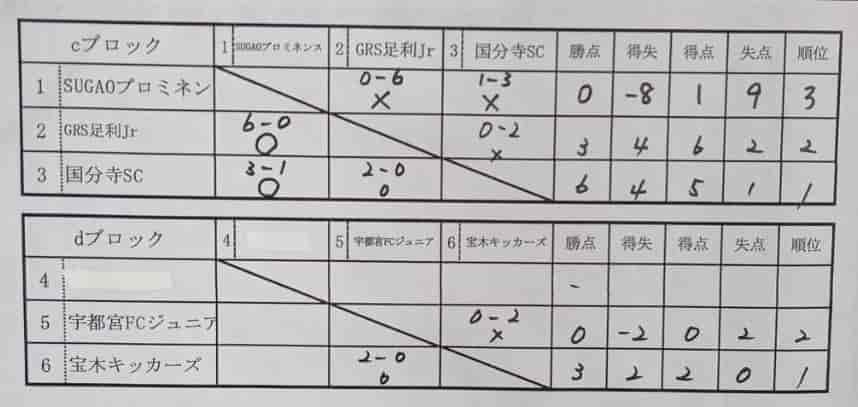 cブロック 1 SUGAOプロミネンス 2 GRS足利Jr 3 国分寺SC 勝点 得失 得点 失点 順位
1 SUGAOプロミネン 0-6 × 1-3 × 0 -8 1 9 3
2 GRS足利Jr 6-0 ○ 0-2 × 3 4 6 2 2
3 国分寺SC 3-1 ○ 2-0 ○ 6 4 5 1 1
dブロック 4 5 宇都宮FCジュニア 6 宝木キッカーズ 勝点 得失 得点 失点 順位
4 -
5 宇都宮FCジュニア 0-2 × 0 -2 0 2 2
6 宝木キッカーズ 2-0 ○ 3 2 2 0 1